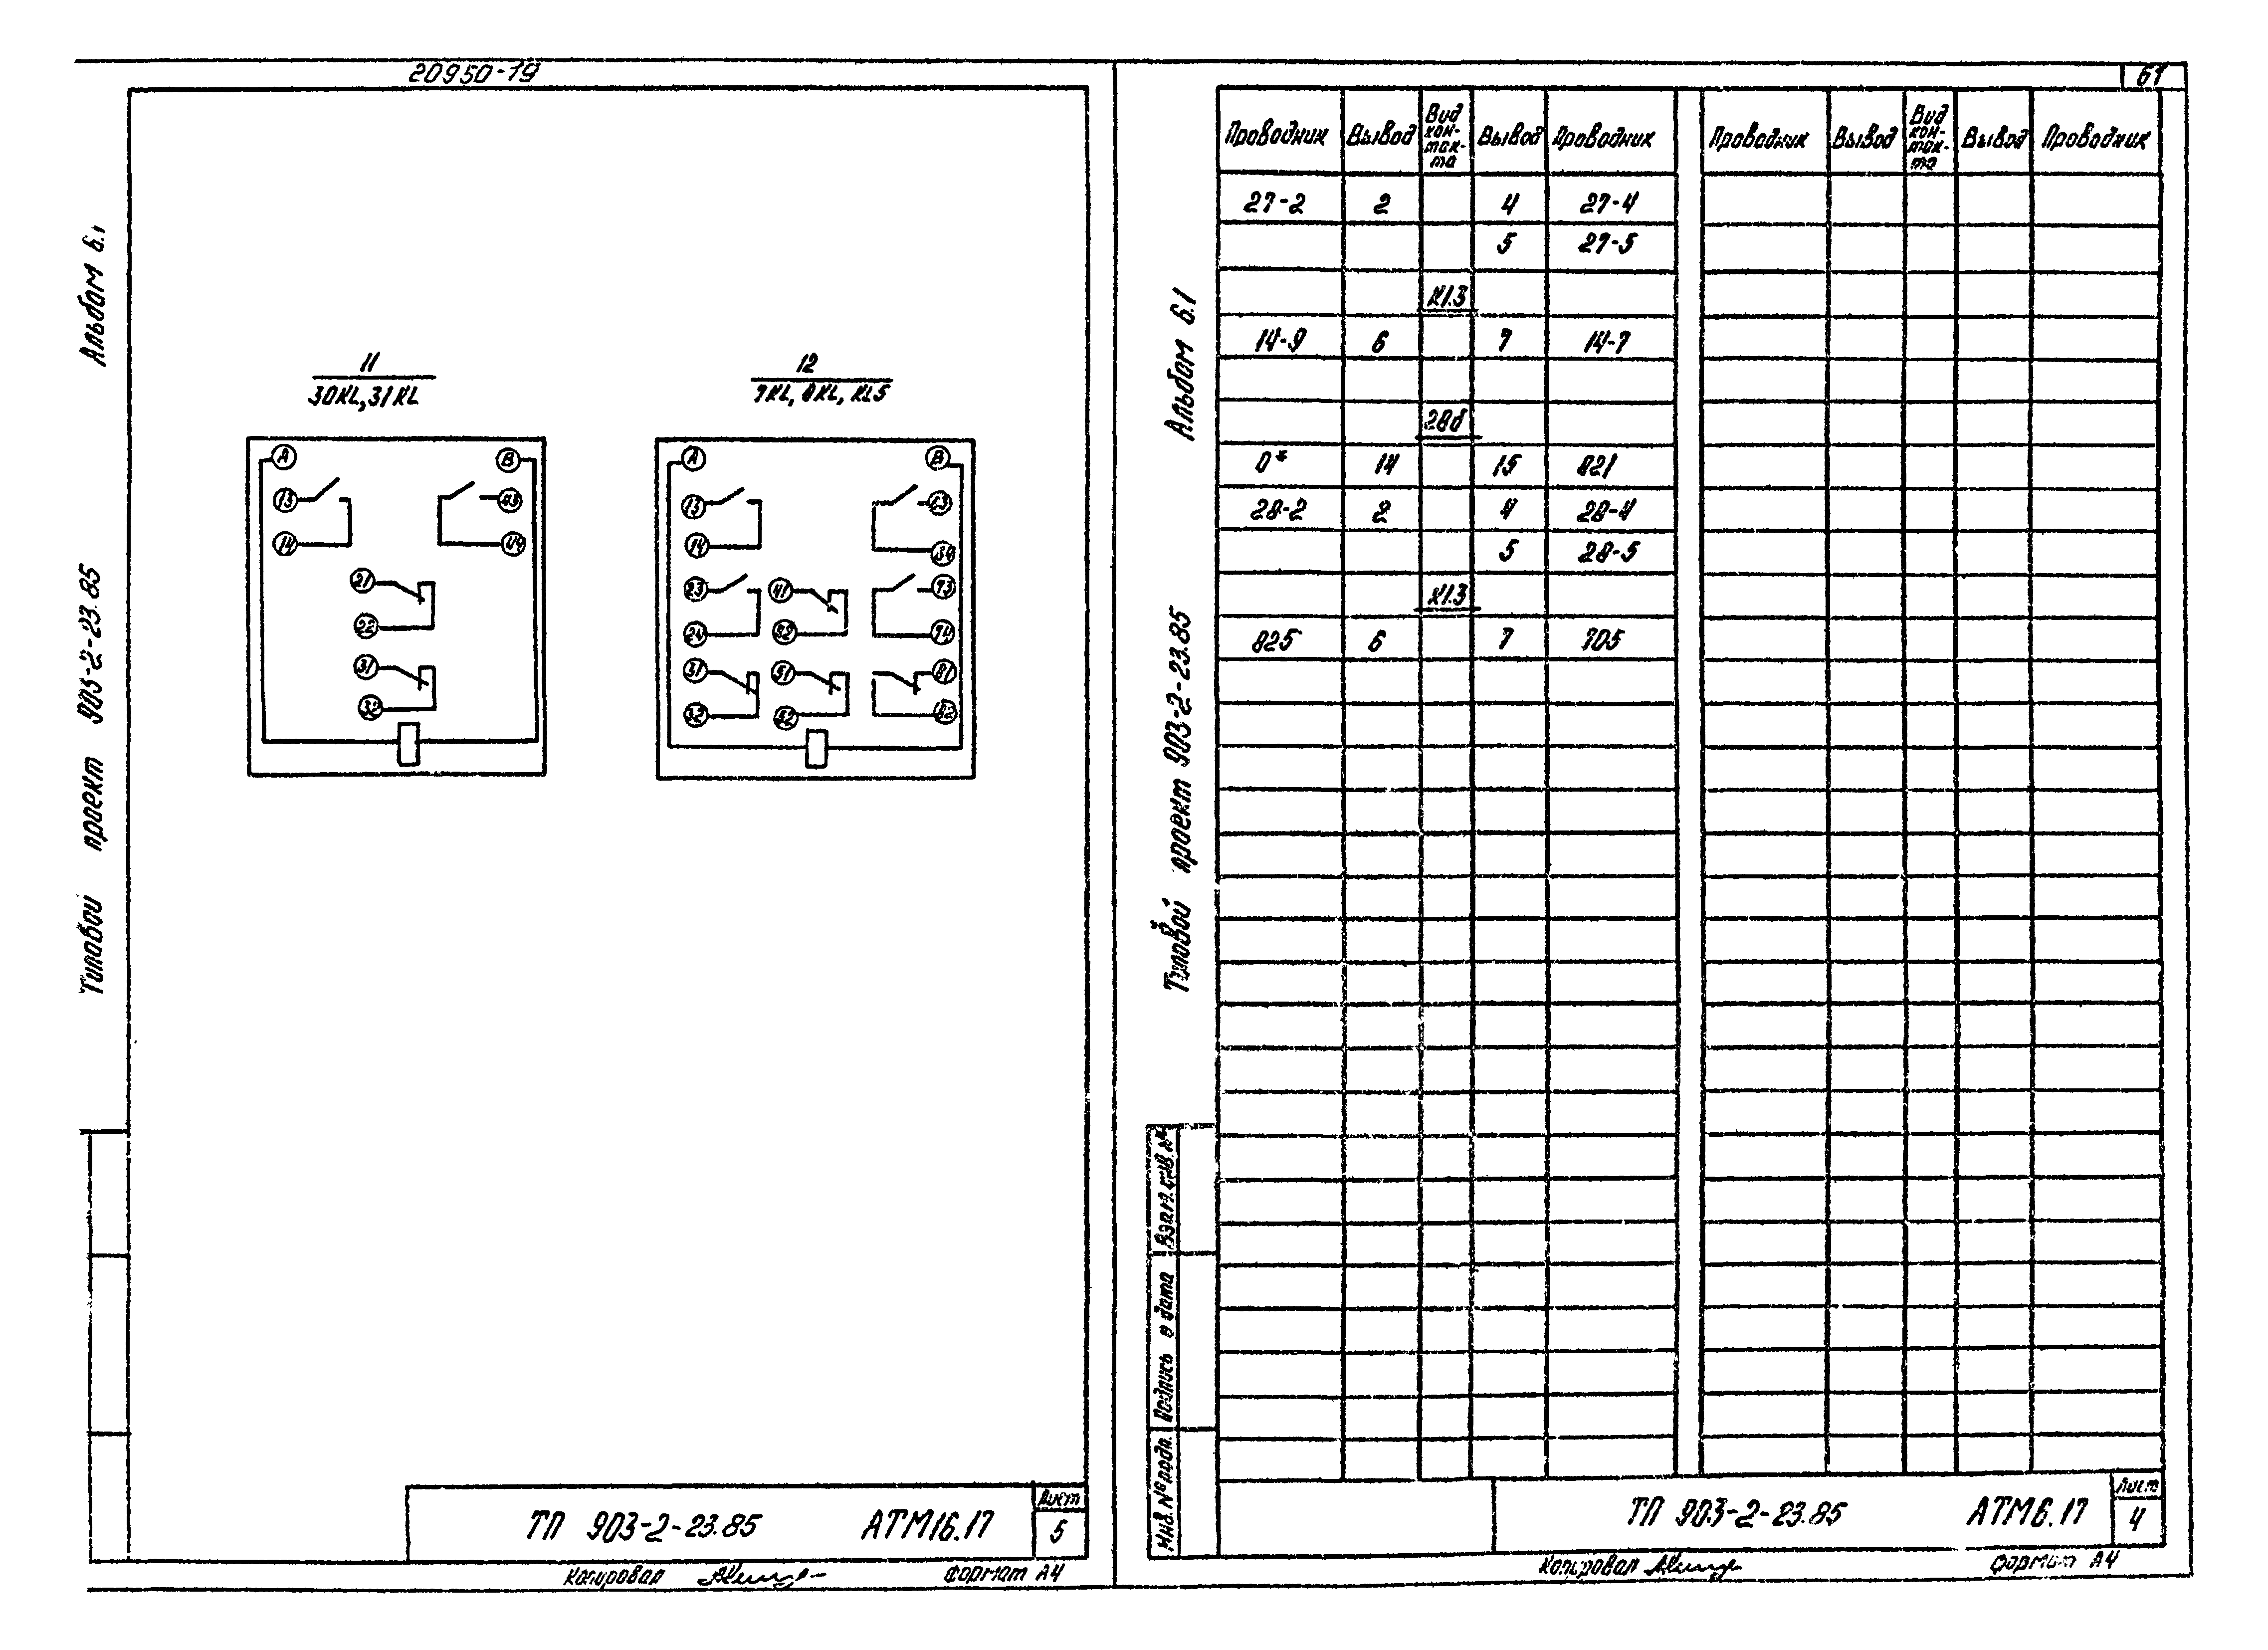 20950-19
61
Альбом 6.1
Типовой проект 903-2-23.85
11
30KL, 31KL
A B
13 43
14 44
21
22
31
32
12
7KL, 8KL, KL5
A B
13 63
14 64
23 41 73
24 42 74
31 51 81
32 52 82
ТП 903-2-23.85 АТМ16.17
Лист
5
Копировал
формат А4
Альбом 6.1
Типовой проект 903-2-23.85
Взам. инв. №
Подпись и дата
Инв. № подл.
Проводник Вывод Вид кон-так-та Вывод Проводник Проводник Вывод Вид кон-так-та Вывод Проводник
27-2 2 4 27-4
5 27-5
X1.3
14-9 6 7 14-7
28б
0* 14 15 821
28-2 2 4 28-4
5 28-5
X1.3
825 6 7 705
ТП 903-2-23.85 АТМ6.17
Лист
4
Копировал
формат А4